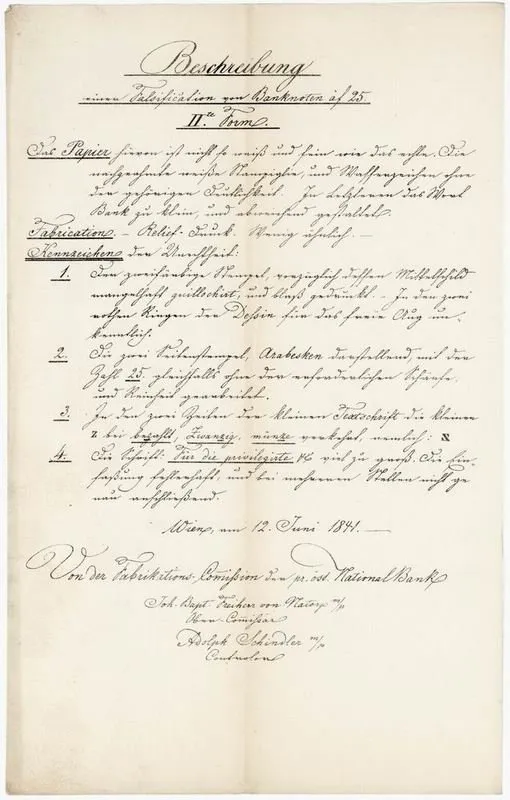 Beschreibung
einer Falsification von Banknoten àf 25.
IIte Form.
Das Papier hievon ist nicht so weiß und fein wie das echte. Die
nachgeahmte weiße Stampiglie, und Wasserzeichen ohne
der gehörigen Deutlichkeit. In Letzterem das Wort
Bank zu klein, und abweichend gestaltet.
Fabrication. – Relief-Druck. Wenig ähnlich. –
Kennzeichen der Unechtheit:
1. Der zweifärbige Stempel, vorzüglich dessen Mittelschild
mangelhaft guillochirt, und blaß gedruckt. – In den zwei
rothen Ringen der Dessin für das freie Aug un-
kenntlich.
2. Die zwei Seitenstempel, Arabesken darstellend, mit der
Zahl 25. gleichfalls ohne der erforderlichen Schärfe,
und Reinheit gearbeitet.
3. In den zwei Zeilen der kleinen Textschrift die kleinen
z bei bezahlt, Zwanzig, münze verkehrt, nemlich:
4. Die Schrift: Für die privilegirte &c viel zu groß. Die Ein-
faßung fehlerhaft, und bei mehreren Stellen nicht ge
nau anschließend.
Wien, am 12. Juni 1841. –
Von der Fabrikations-Comission der pr. öst. National Bank
Joh. Bapt Freiherr von m/p
Ober-Commissär
Adolph Schindler m/p
Controlor